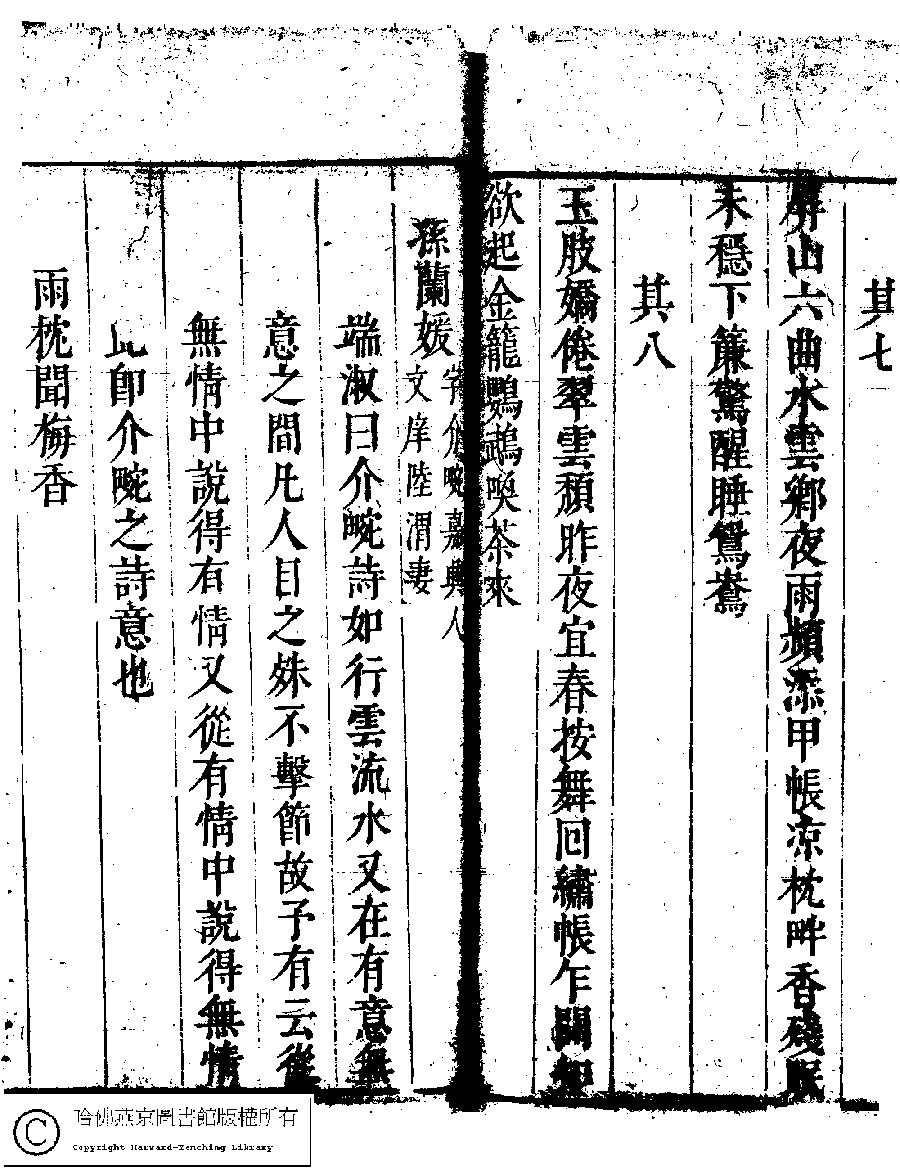 其七
屏山六曲水雲鄉夜雨頻添甲帳凉枕畔香殘眠
未穩下簾驚醒睡鴛鴦
其八
玉肢嬌倦翠雲頹昨夜宜春按舞回繡帳乍開
欲起金籠鸚鵡喚茶來
孫蘭媛
字介畹嘉興人
文庠陸渭妻
端淑曰介畹詩如行雲流水又在有意無
意之間凡人目之殊不擊節故予有云從
無情中說得有情又從有情中說得無情
此卽介畹之詩意也
雨枕聞梅香
哈佛燕京圖書館版權所有
Copyright Harvard-Yenching Library